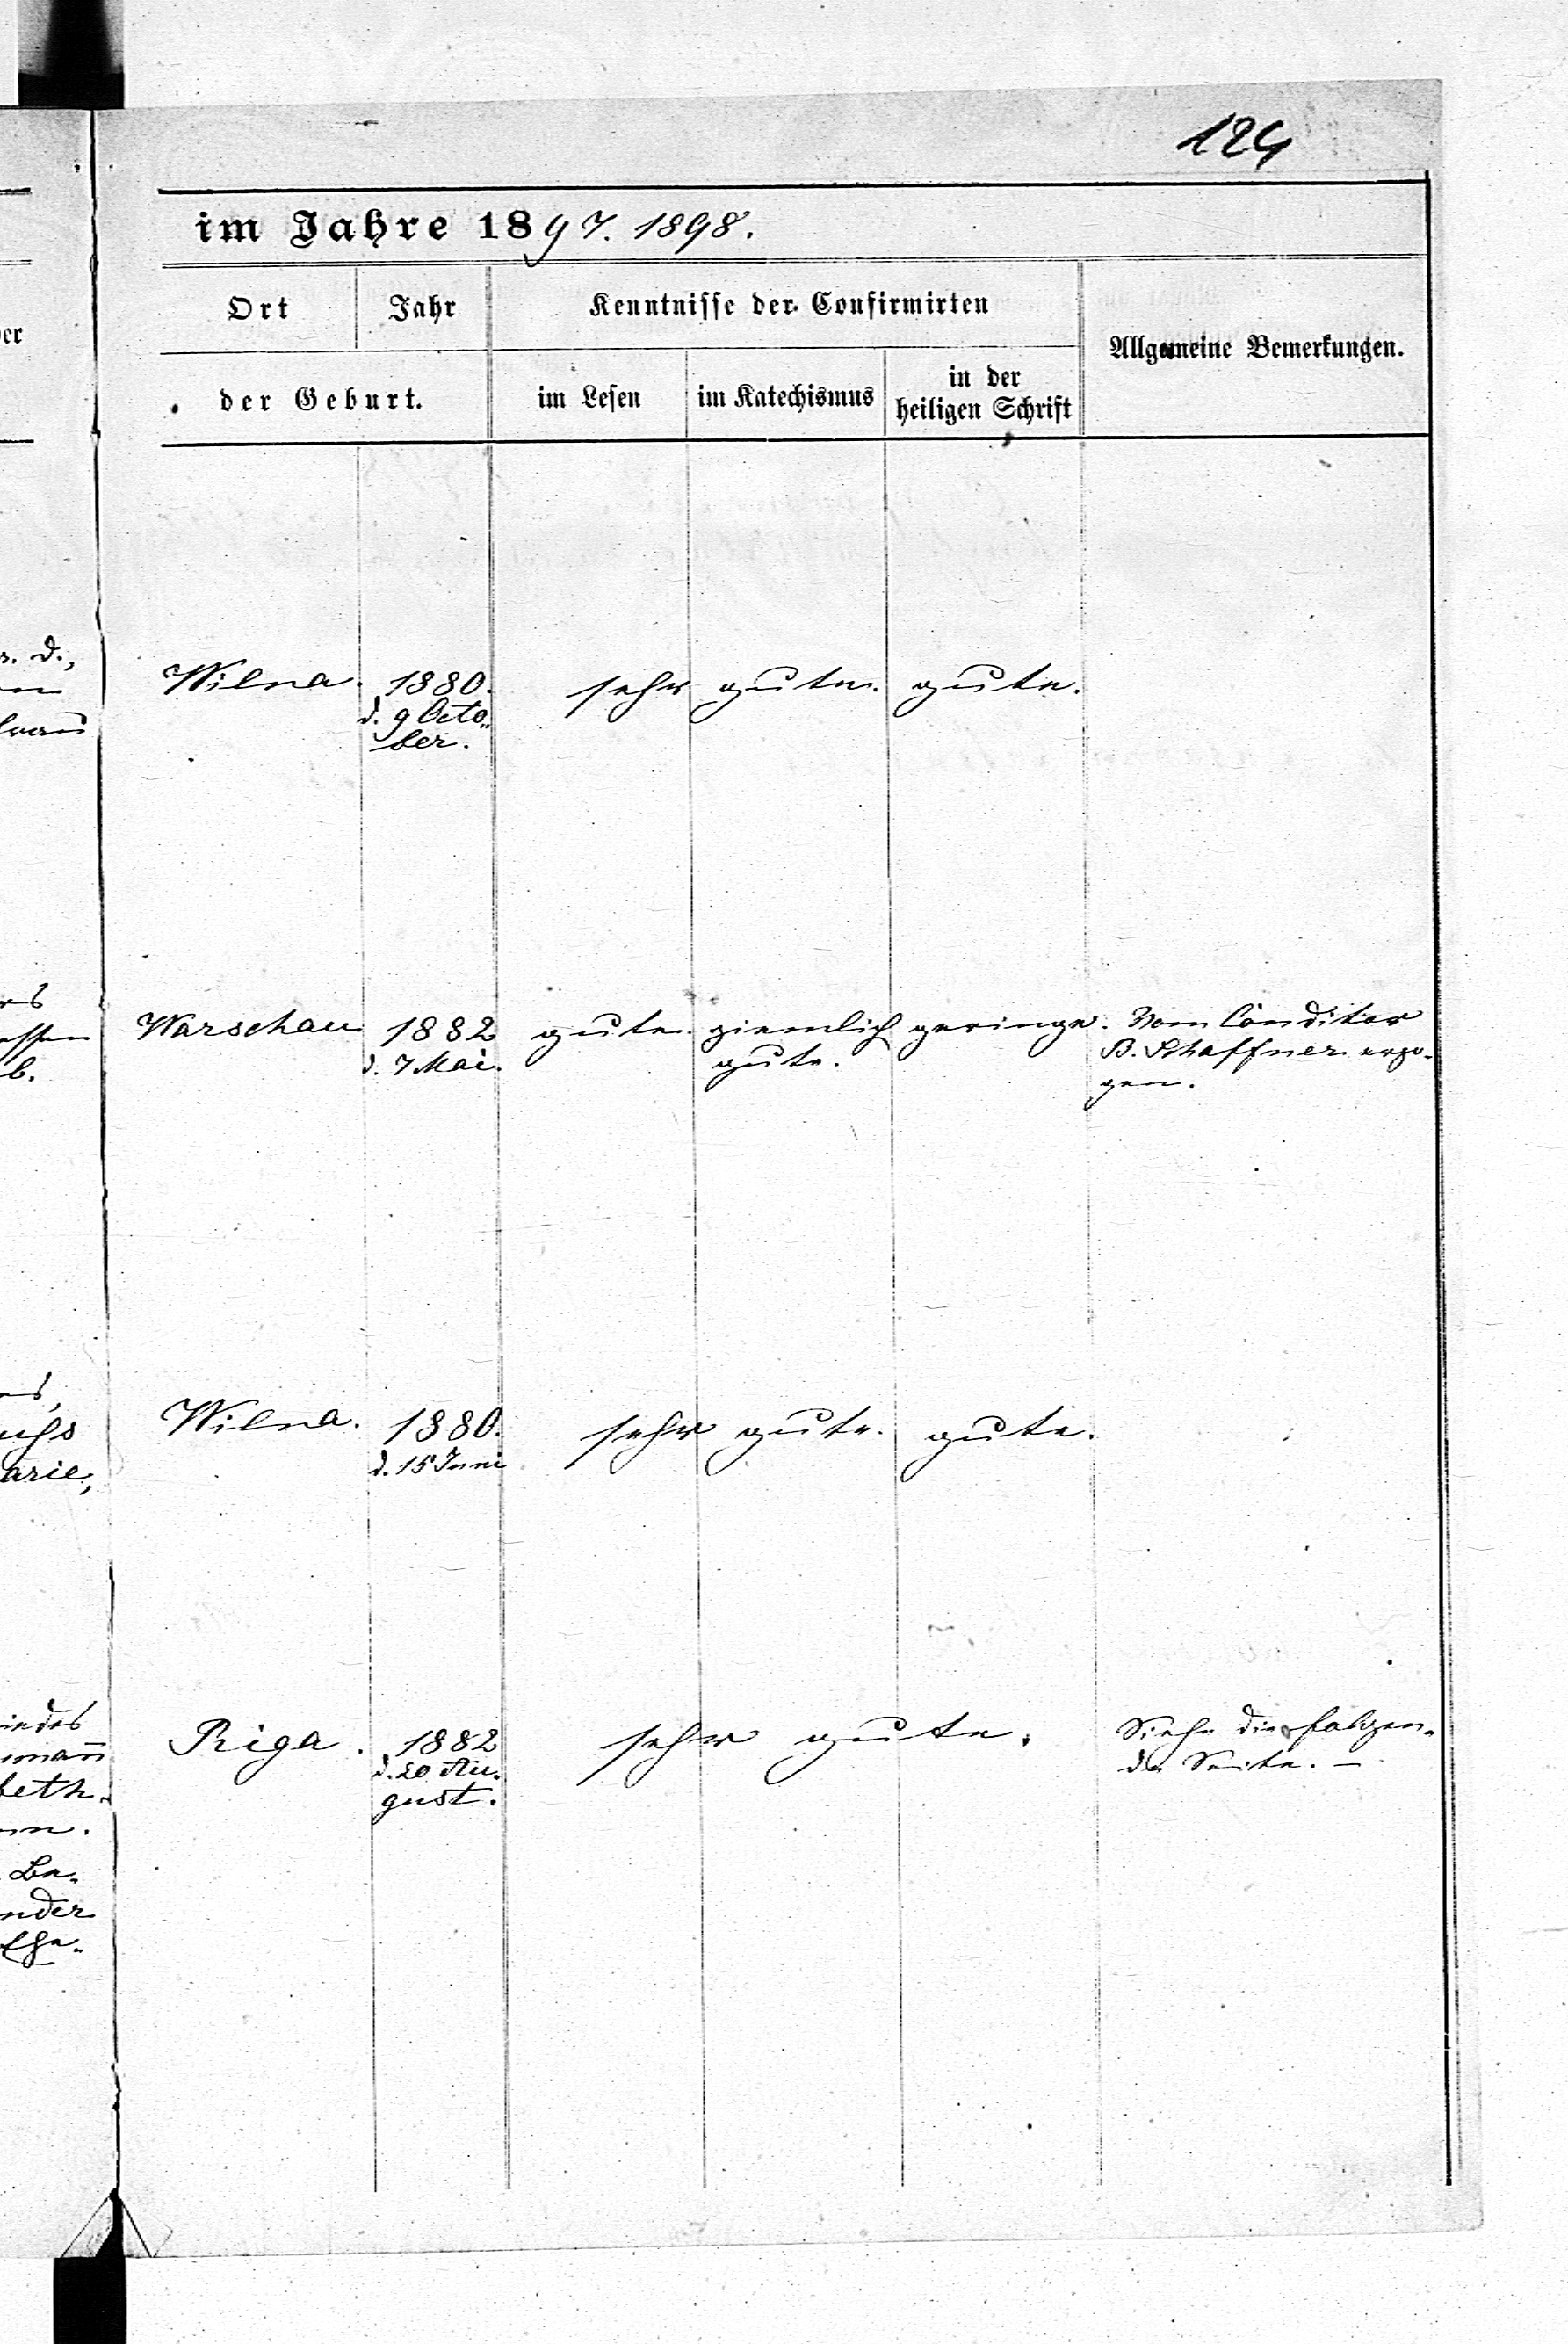 124
im Jahre 1897. 1898.
Ort Jahr Kenntnisse der Confirmirten
Allgemeine Bemerkungen.
der Geburt. im Lesen im Katechismus in der
heiligen Schrift
Wilna. 1880. sehr gute. gute.
d. 9 Octo-
ber.
Warschau 1882 gute. ziemlich geringe. Vom Conditor
d. 7 Mai. gute. B. Schaffner erzo-
gen.
Wilna. 1880. sehr gute. gute.
d. 15 Juni
arie,
Riga. 1882 sehr gute. Siehe die folgen-
d. 20 Au- de Seite. –
gust.
mann
beth.
nder